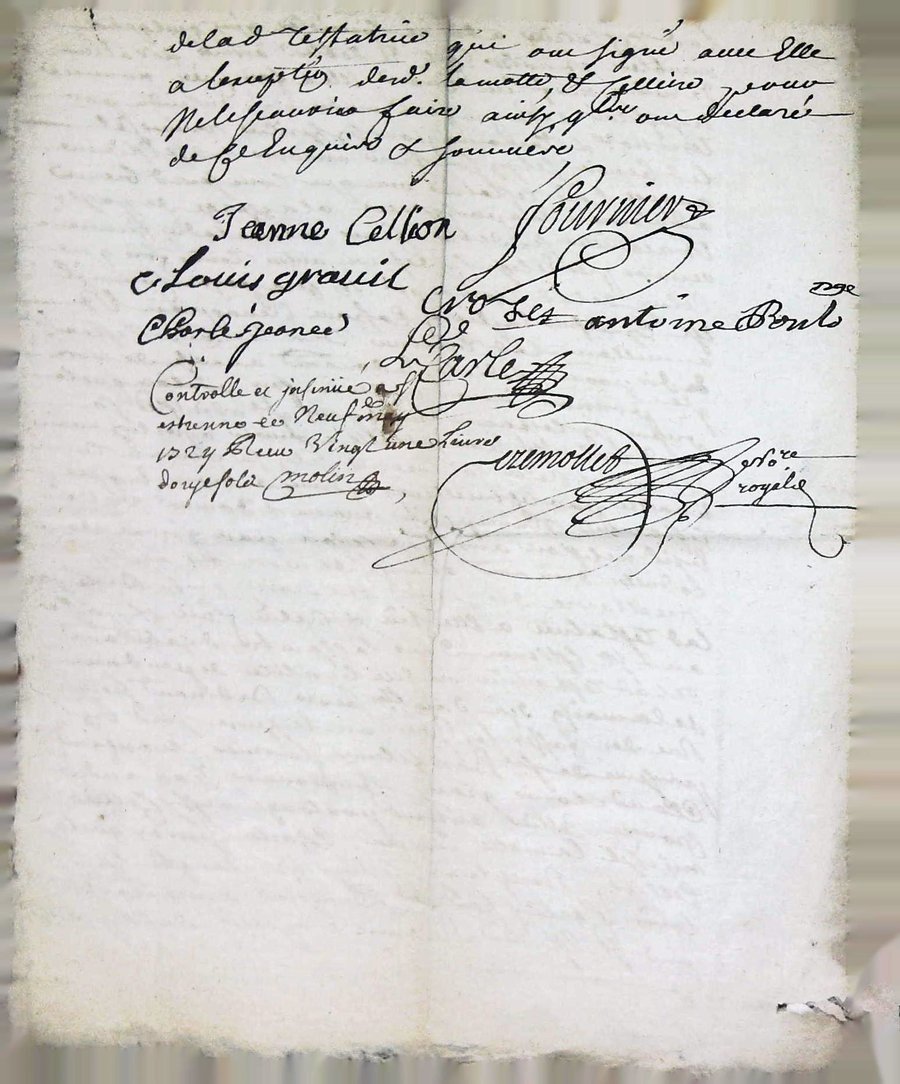 delad testatrice qui ont signé avec Elle
a lexception desd. lamotte & Cellien pour
Ne le scauoir faire ainsy quils ont declaré
de Ce Enquis & sommés
fournier
Jeanne Cellion
Louis grauil
Crozet antoine
Charle jeanee
Carle
Controlle et jnsinüé a St
estienne ce Neuf may
1724 Receu Vingt une Liure
douze sols molin
cremollet No.re
royal